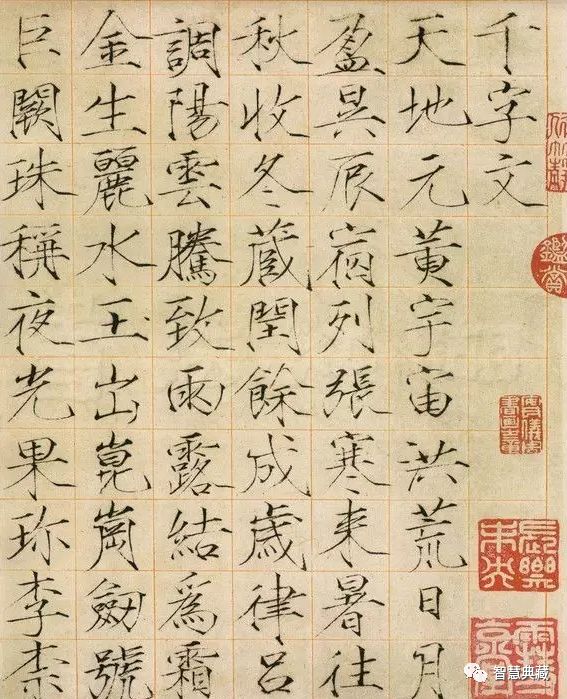 千字文
天地元黄宇宙洪荒日月
盈昃辰宿列張寒来暑往
秋收冬蔵閏餘成歳律呂
調陽雲騰致雨露結爲霜
金生麗水玉出崑崗劔號
巨闕珠稱夜光果珎李柰
智慧典藏